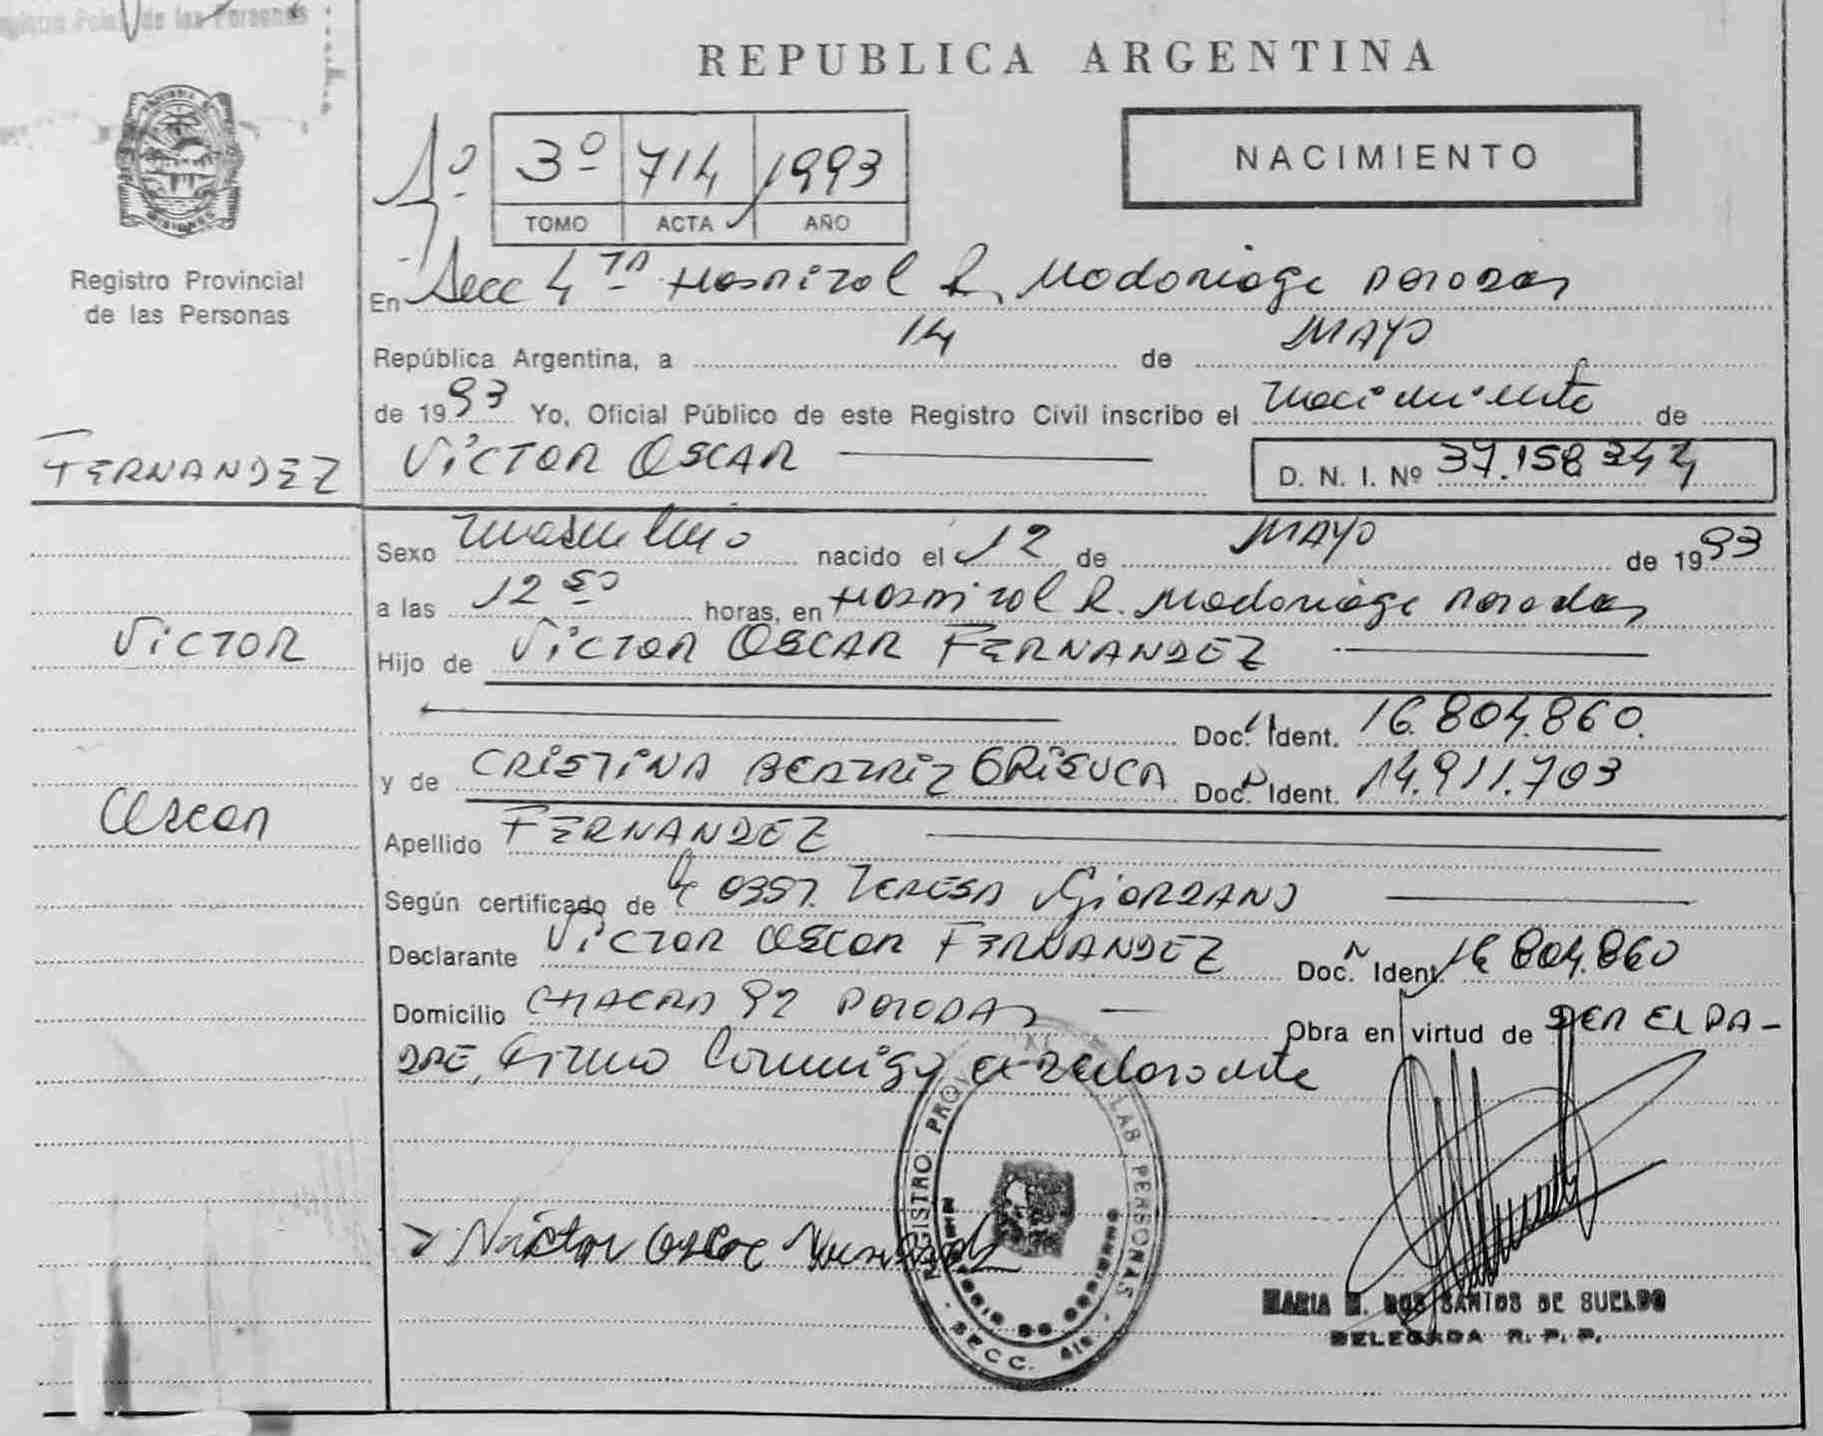 de las Personas
REPUBLICA ARGENTINA
1º 3º 714 1993
TOMO ACTA AÑO
NACIMIENTO
Registro Provincial
de las Personas
En Secc 4 TA Hospital R. Madariaga Posadas
República Argentina, a 14 de MAYO
de 1993 Yo, Oficial Público de este Registro Civil inscribo el Nacimiento de
FERNANDEZ
VICTOR OSCAR
D. N. I. Nº 37.158.244
Sexo Masculino nacido el 12 de MAYO de 1993
a las 12 50 horas, en Hospital R. Madariaga Posadas
VICTOR
Hijo de VICTOR OSCAR FERNANDEZ
Doc. Ident. 16.804.860.
y de CRISTINA BEATRIZ Doc. Ident. 14.911.703
Oscar
Apellido FERNANDEZ
Según certificado de TERESA GIORDANO
Declarante VICTOR OSCAR FERNANDEZ Doc. Ident. 16.804.860
Domicilio CHACRA 92 POSADAS Obra en virtud de SER EL PA-
DRE, Firma Conmigo el declarante
REGISTRO LAS PERSONAS
SECC.
MARIA M. DOS SANTOS DE SUELDO
DELEGADA R. P. P.